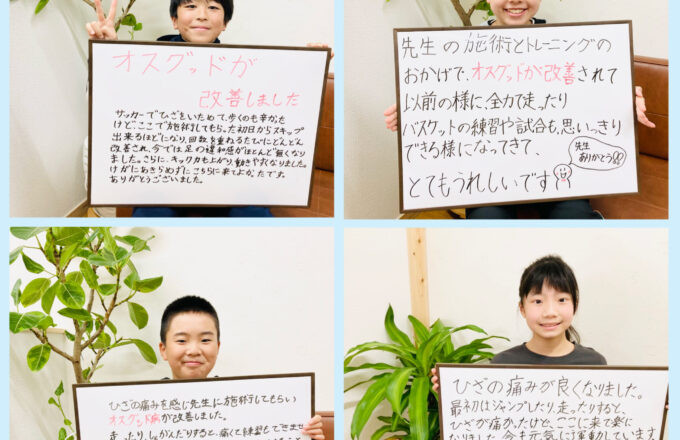 オスグッドが
改善しました
サッカーでひざをいためて、歩くのも辛かった
けど、ここで施術してもらった初日からスキップ
出来るほどになり、回数を重ねるたびにどんどん
改善され、今では足の違和感がほとんど無くなり
ました。さらに、キック力も上がり、動きやすくなりました。
けがにあきらめずにこちらに来てよかったです。
ありがとうございました。
先生の施術とトレーニングの
おかげで、オスグッドが改善されて
以前の様に、全力で走ったり
バスケットの練習や試合も、思いっきり
できる様になってきて、
とてもうれしいです
先生
ありがとう
ひざの痛みを感じ先生に施術してもらい
オスグッド病が改善しました。
走ったり、しゃがんだりすると、痛くて練習もできませ
ひざの痛みが良くなりました。
最初はジャンプしたり、走ったりすると、
ひざが痛かったけど、ここに来て楽に
なりました。今も元気に運動しています